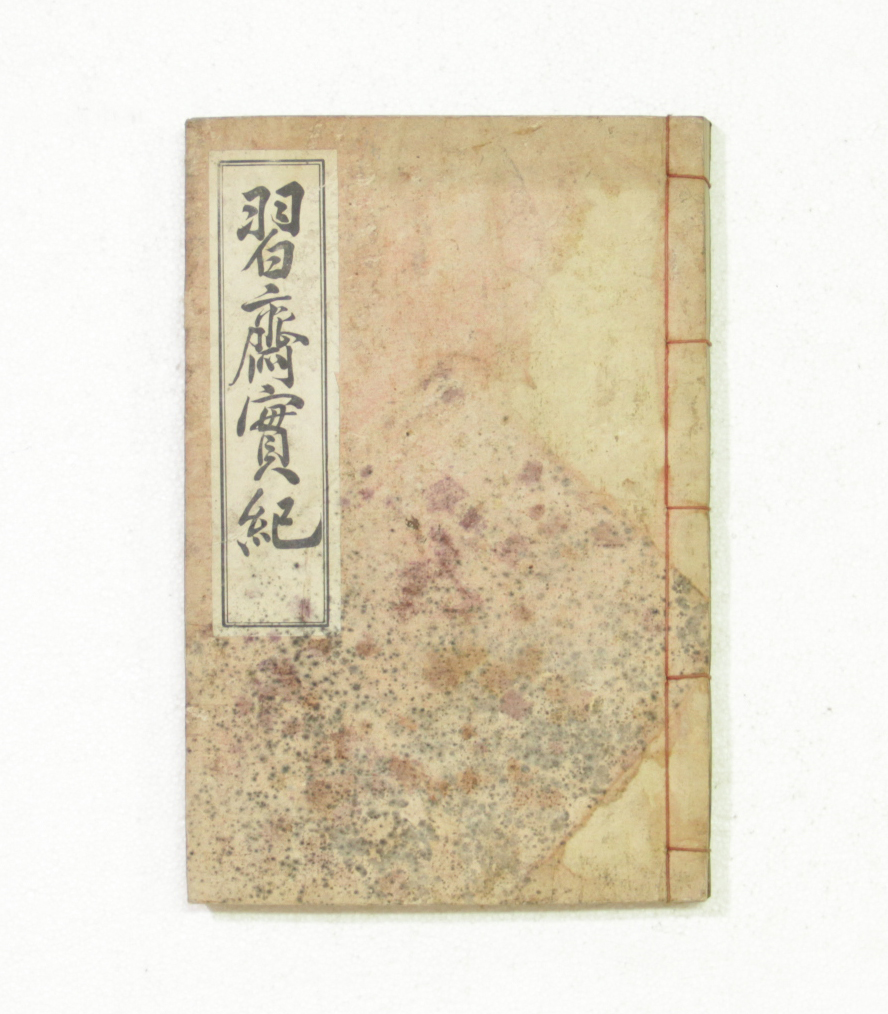 習齋實紀